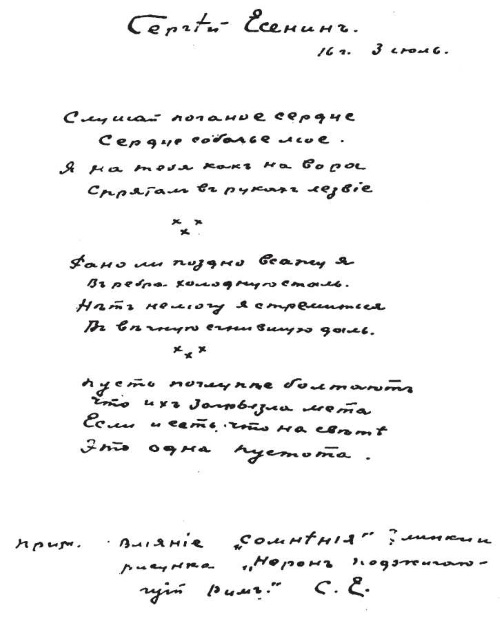 Сергѣй Есенинъ.
16 г. 3 июль.
Слушай поганое сердце
Сердце собачье мое.
Я на тебя какъ на вора
Спряталъ въ рукахъ лезвіе
× × ×
Рано ли поздно всажу я
Въ ребра холодную сталь.
Нѣтъ немогу я стремиться
Въ вѣчную сгнившую даль.
× × ×
Пусть поглупѣе болтаютъ
Что ихъ загрызла мета
Если и есть что на свѣтѣ
Это одна пустота.
Прим. Вліяніе „Сомнѣнія“ Глинки и
рисунка „Неронъ поджигаю-
щій Римъ.“ С. Е.